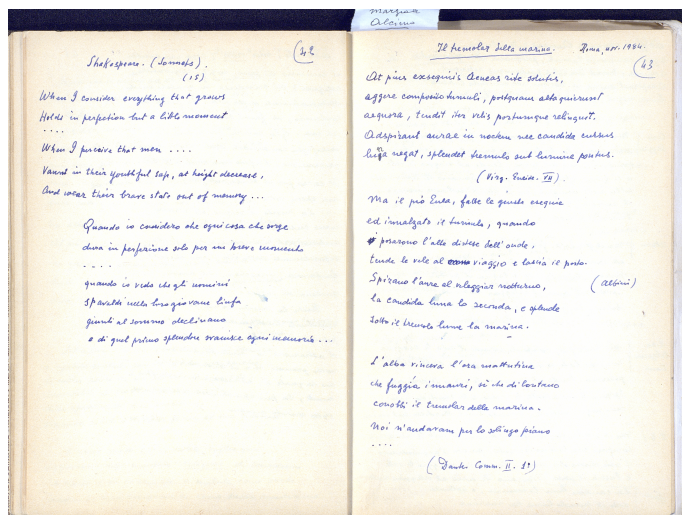 Marginalia
Alcima
42
Shakespeare. (Sonnets).
(15)
When I consider everything that grows
Holds in perfection but a little moment
....
When I perceive that men ....
Vaunt in their youthful sap, at height decrease,
And wear their brave state out of memory ...
Quando io considero che ogni cosa che sorge
dura in perfezione solo per un breve momento
....
quando io vedo che gli uomini
spavaldi nella loro giovane linfa
giunti al sommo declinano
e di quel primo splendore svanisce ogni memoria ...
Il tremolar della marina. Roma, nov. 1984.
43
At pius exsequiis Aeneas rite solutis,
aggere composito tumuli, postquam alta quierunt
aequora, tendit iter velis portumque relinquit.
Adspirant aurae in noctem nec candida cursus
luna negat, splendet tremulo sub lumine pontus.
(Virg. Eneide. VII).
Ma il pio Enea, fatte le giuste esequie
ed innalzato il tumulo, quando
posarono l'alte distese dell'onde,
tende le vele al viaggio e lascia il porto.
Spirano l'aure al veleggiar notturno, (Albini)
la candida luna lo seconda, e splende
sotto il tremulo lume la marina.
L'alba vinceva l'ora mattutina
che fuggía innanzi, sì che di lontano
conobbi il tremolar della marina.
Noi n'andavam per lo solingo piano
....
(Dante Comm. II. 1º)